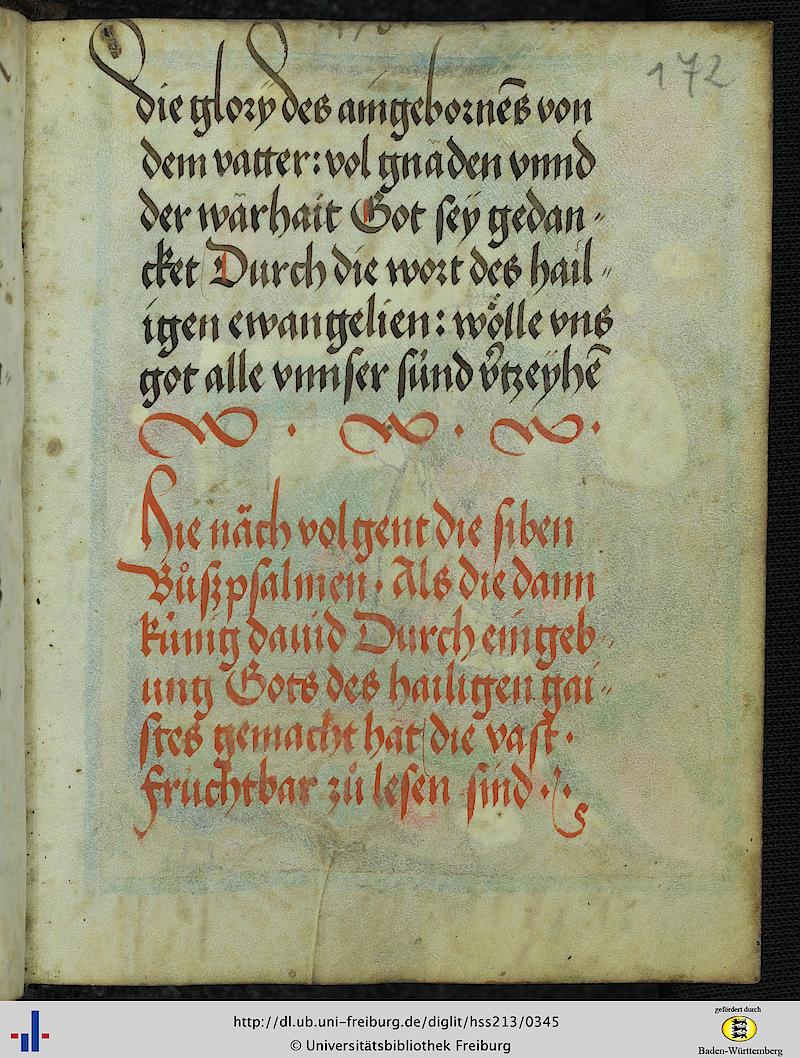 172
die glory des aingebornen̄s von
dem vatter: vol gnāden vnnd
der wärhait Got sey gedan-
cket Durch die wort des hail-
igen ewangelien: wölle vns
got alle vnnser sünd v̄tzeyhē
Hie näch volgent die siben
Bůßpsalmen. Als die dann
künig dauid Durch eingeb-
ung Gots des hailigen gai-
stes gemacht hät die vast.
fruchtbar zů lesen sind.
http://dl.ub.uni-freiburg.de/diglit/hss213/0345
© Universitätsbibliothek Freiburg
gefördert durch
Baden-Württemberg